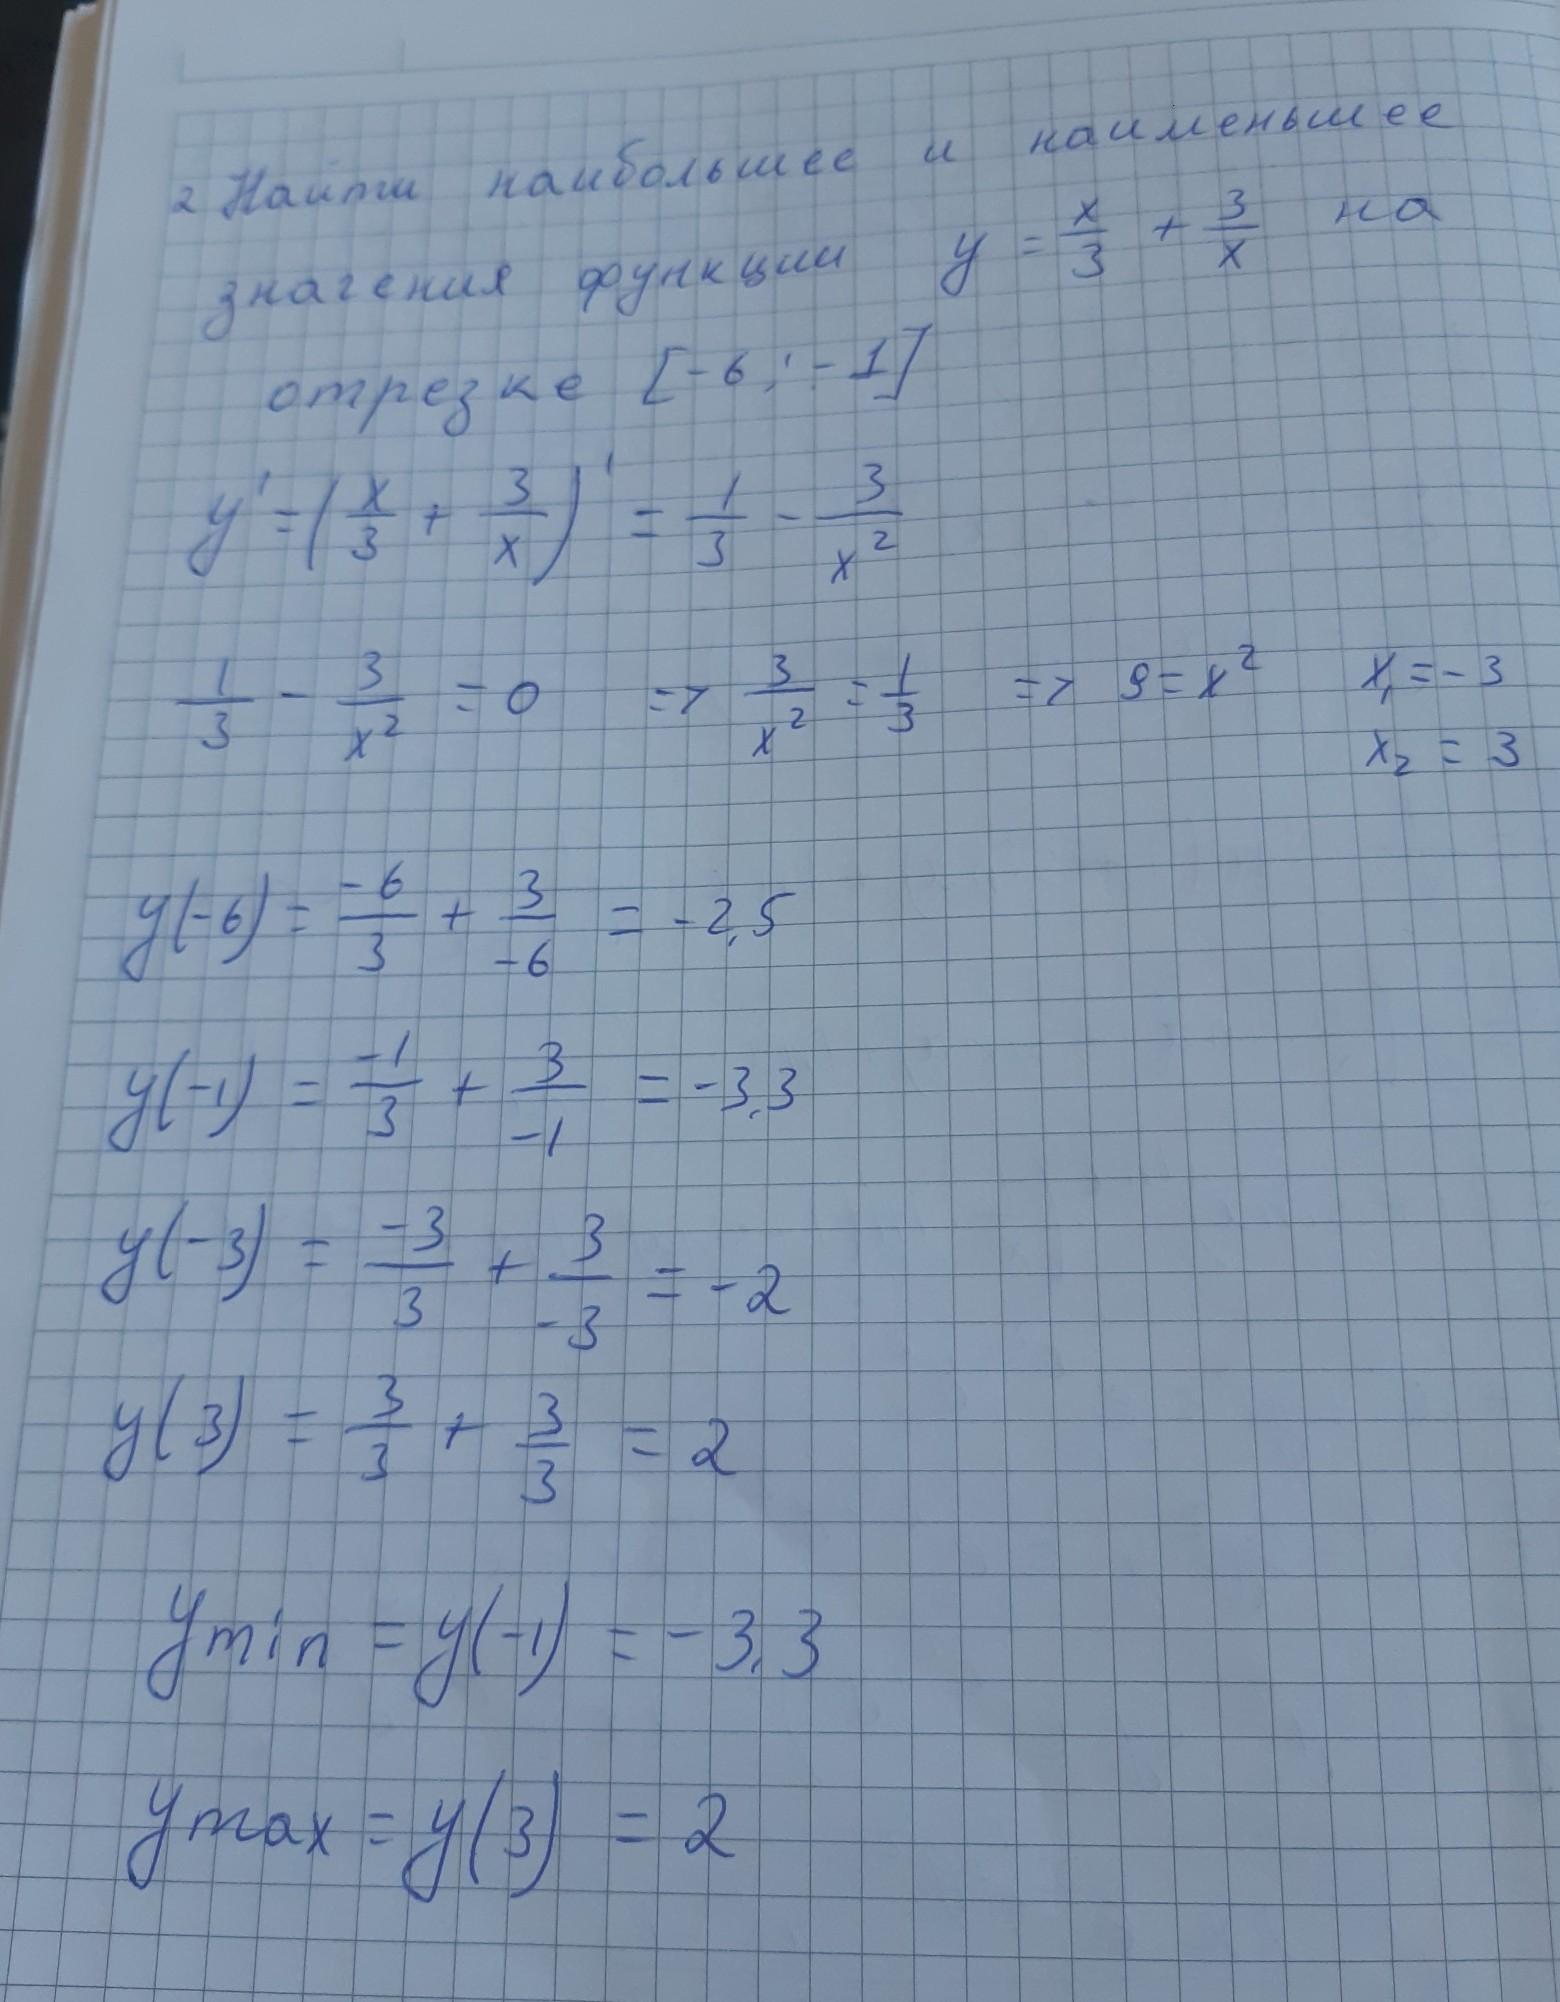 2 Найти наибольшее и наименьшее
значения функции y = x/3 + 3/x на
отрезке [-6; -1]
y' = (x/3 + 3/x)' = 1/3 - 3/x²
1/3 - 3/x² = 0 => 3/x² = 1/3 => 9 = x² x₁ = -3
x₂ = 3
y(-6) = -6/3 + 3/-6 = -2,5
y(-1) = -1/3 + 3/-1 = -3,3
y(-3) = -3/3 + 3/-3 = -2
y(3) = 3/3 + 3/3 = 2
ymin = y(-1) = -3,3
ymax = y(3) = 2